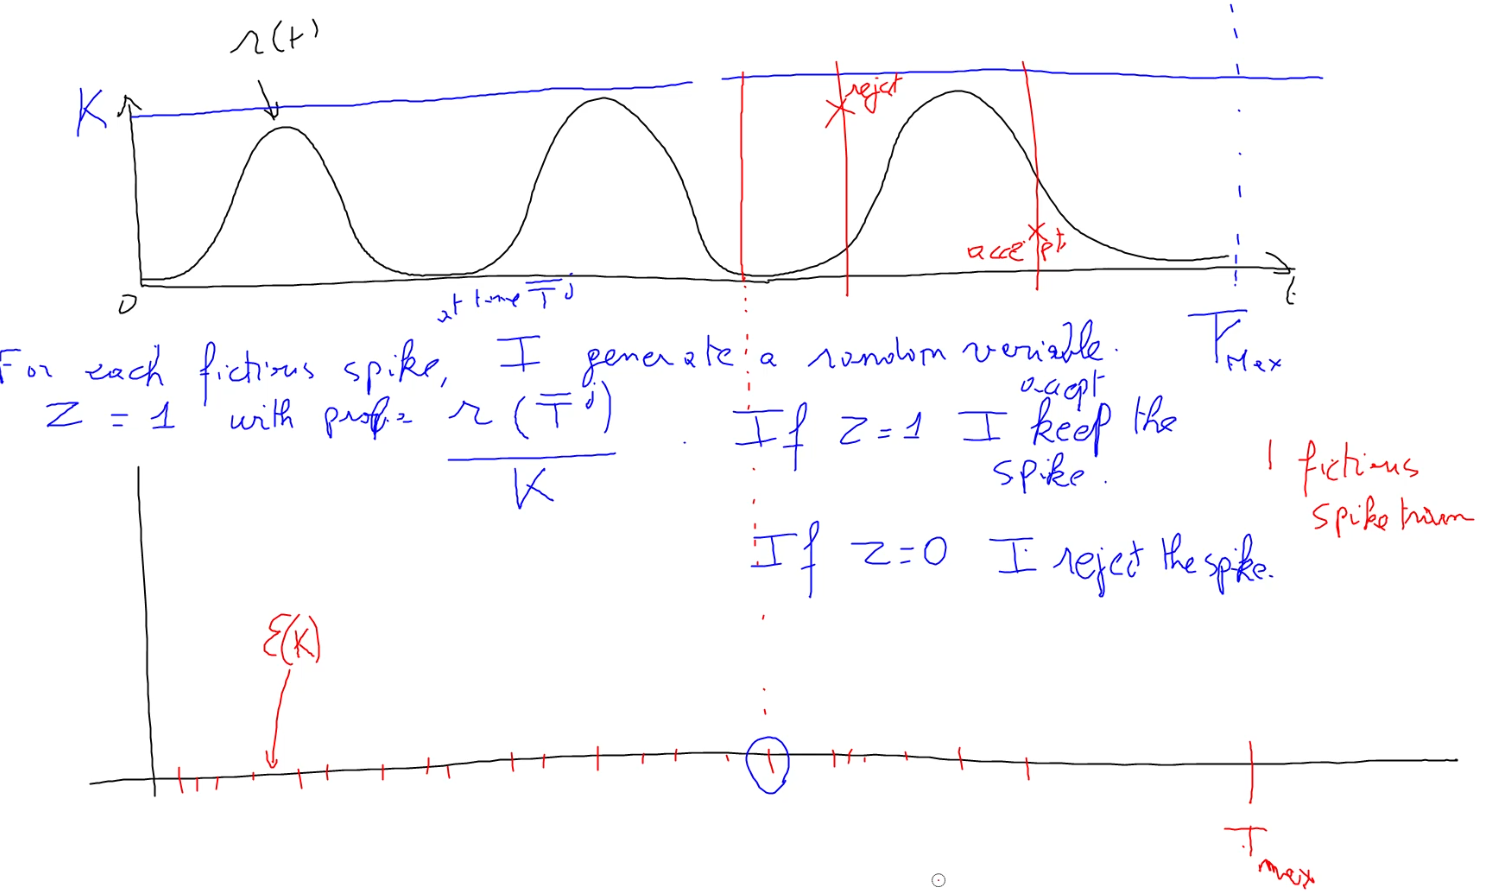 r(t)
K
reject
accept
0
t
at time T̄ʲ
T_Max
For each fictious spike, I generate a random variable.
Z = 1 with prob = r(T̄ʲ)/K . If Z=1 I accept keep the spike.
If Z=0 I reject the spike.
| fictious
spike train
ℰ(K)
T_max